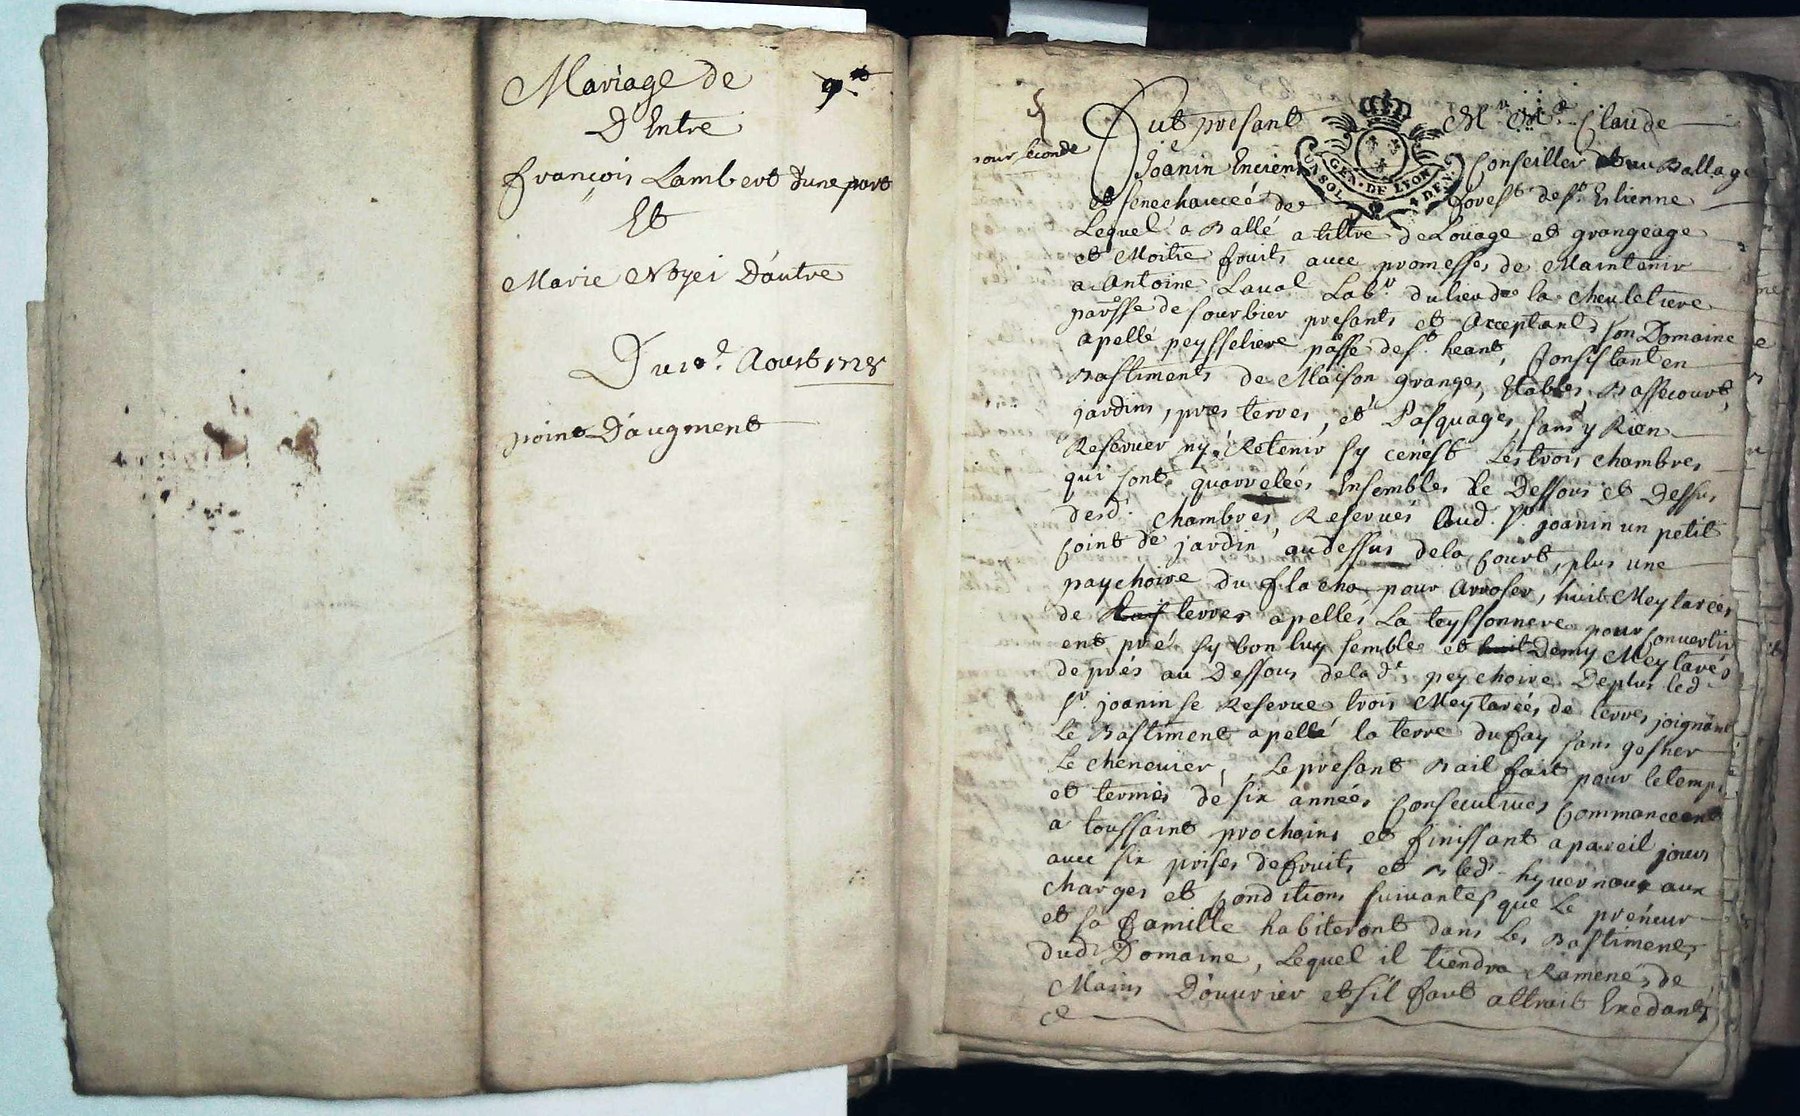 Mariage de
D'Entre
françois Lambert d'une part
Et
Marie Noyei D'autre
Du 10e. Aoust 1728
point D'augment
pour seconde
Fut présant Mre Claude
Joanin Encien Conseiller au Ballage
GEN. DE LYON
et senechaucée de forest de St. Etienne
Lequel a Ballé a tittre de Loüage et grangeage
et Moitie fruits avec promesses de Maintenir
a Antoine Laval Labr. du lieu de la cheuletiere
parosse de sourbier présants et Acceptant, son Domaine
apellé peysseliere passe de St. heant, Consistant en
Bastiments de Maison granges, Etables, Bassecourt,
jardins, pres terres, et Pasquages, sans y Rien
Reserver ny Retenir sy cenést Les trois chambres
qui sont quarrelées Ensembles Le Dessous et Dessus
desd. chambres Reservés aud. Sr. joanin un petit
coint de jardin au dessus de la Court, plus une
paychoire du flacha pour arroser, huit Meytarées
de terres apellés La teyssonnere pour Convertir
ent pré sy bon luy semble et Demy Meytarés
de prés au Dessous de lade. peychoire. De plus led.
Sr. joanin se Reserve trois Meytarées de terres joignant
Le Bastiment apellé la terre du fay sans
Le chenevier, Le présant Bail fait pour le temps
et termes de six années Consecutives Commanceant
a toussaint prochains et finissant a pareil jours
avec six prises de fruits et Bled hyvernaux aux
charges et Conditions suivantes que Le preneur
et sa famille habiteront dans Les Bastiments
dud. Domaine, Lequel il tiendra Ramené de
Mains D'ouvrier et s'il faut attrait Excedant